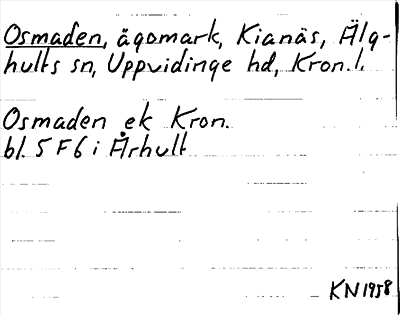 Osmaden, ägomark, Kianäs, Älg-
hults sn, Uppvidinge hd, Kron.l.
Osmaden ek Kron.
bl. 5 F 6 i Århult
KN 1958